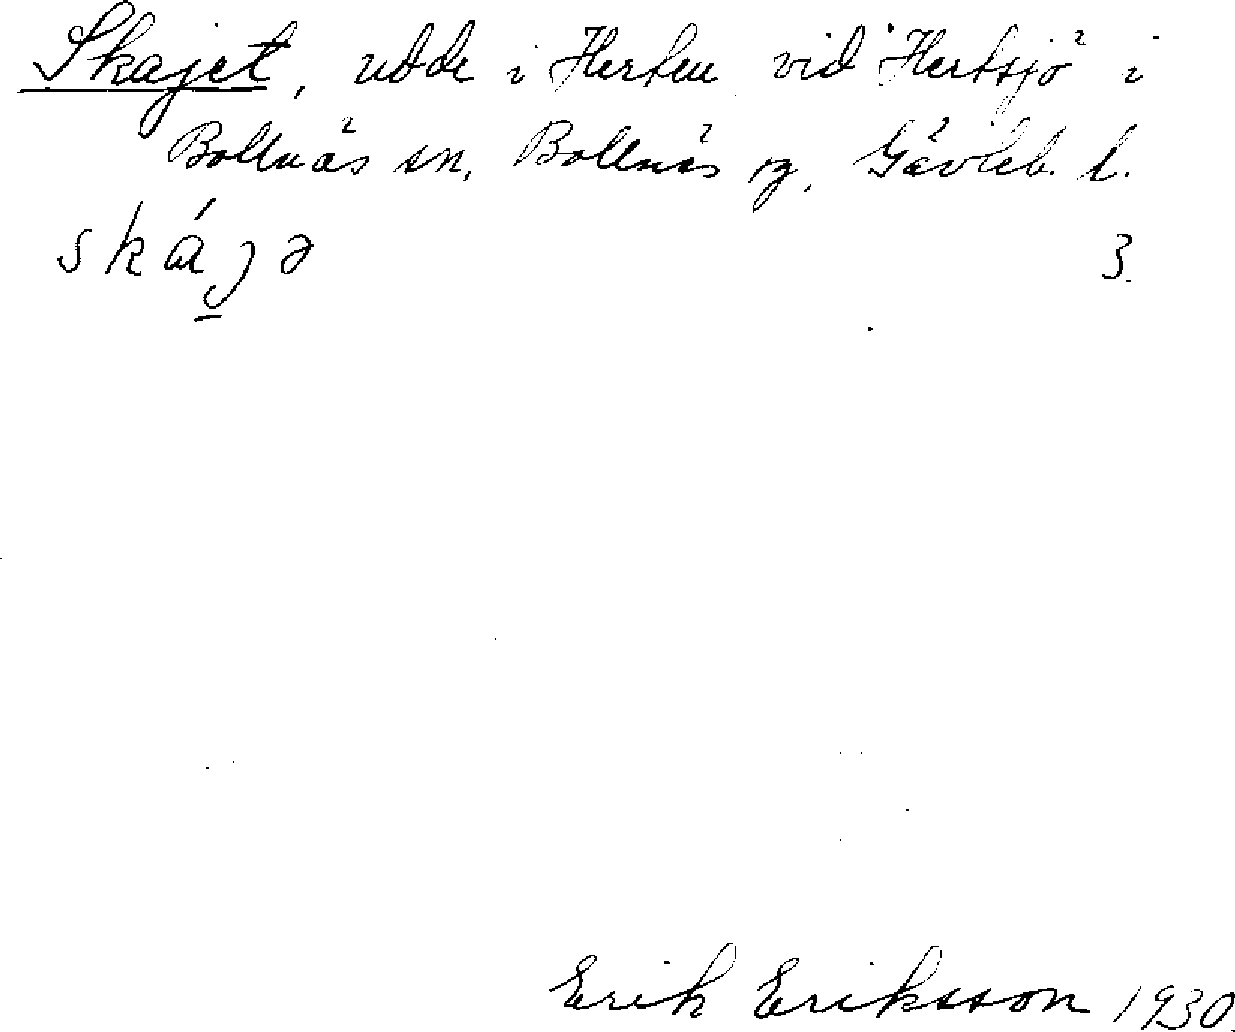 Skajet, udde i Herten vid Hertsjö i
Bollnäs sn, Bollnäs sg, Gävleb. l.
skájə 3.
Erik Eriksson 1930.